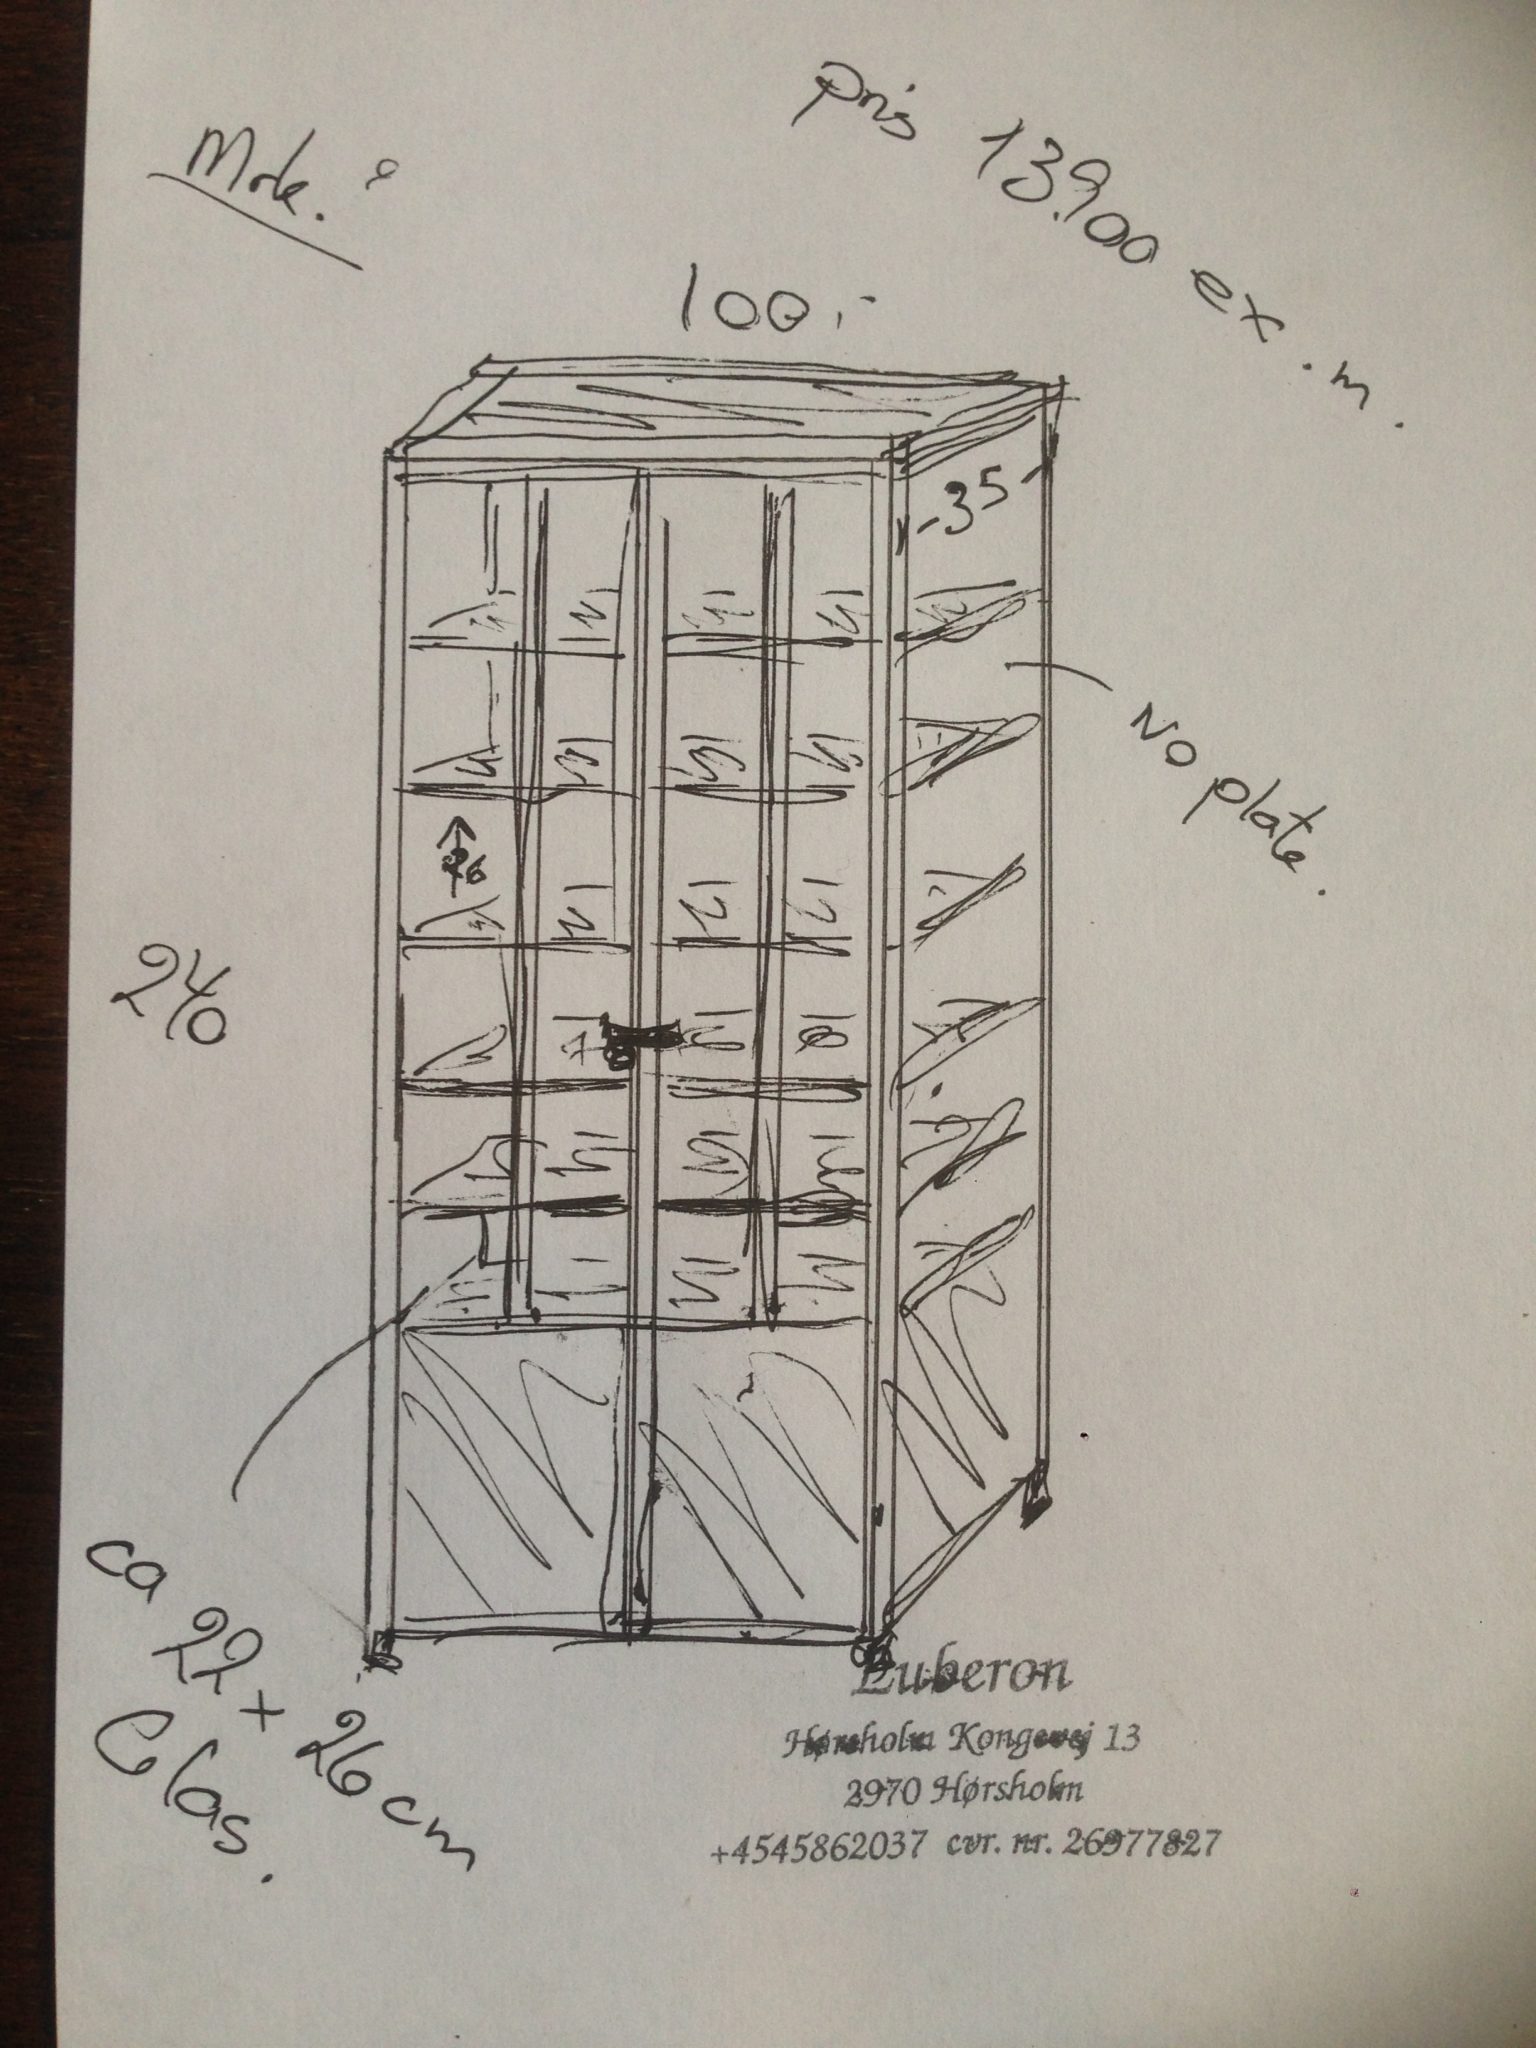 pris 13.900 ex. m.
100,-
-35-
No plate.
26
240
ca 22 x 26 cm
Glas.
Luberon
Hørsholm Kongevej 13
2970 Hørsholm
+4545862037 cvr. nr. 26977827